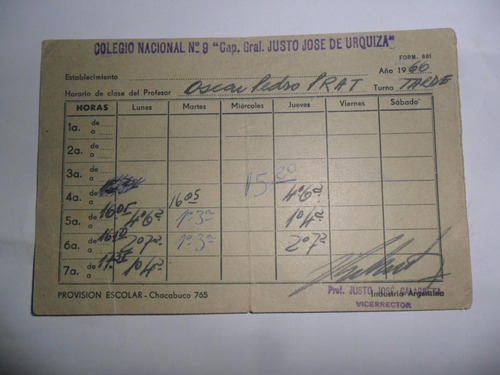 COLEGIO NACIONAL Nº 9 "Cap. Gral. JUSTO JOSE DE URQUIZA"
FORM. 881
Establecimiento Año 1960
Horario de clase del Profesor Oscar Pedro PRAT Turno TARDE
HORAS Lunes Martes Miércoles Jueves Viernes Sábado
1a. de a
2a. de a
3a. de a 15.20
4a. de a 16 05 4º 6ª
5a. de 16.05 a 4º 6ª 1º 3ª 1º 4ª
6a. de a 2º 7ª 1º 3ª 2º 7ª
7a. de a 1º 4ª
PROVISION ESCOLAR - Chacabuco 765 Industria Argentina
Prof. JUSTO JOSÉ
VICERRECTOR